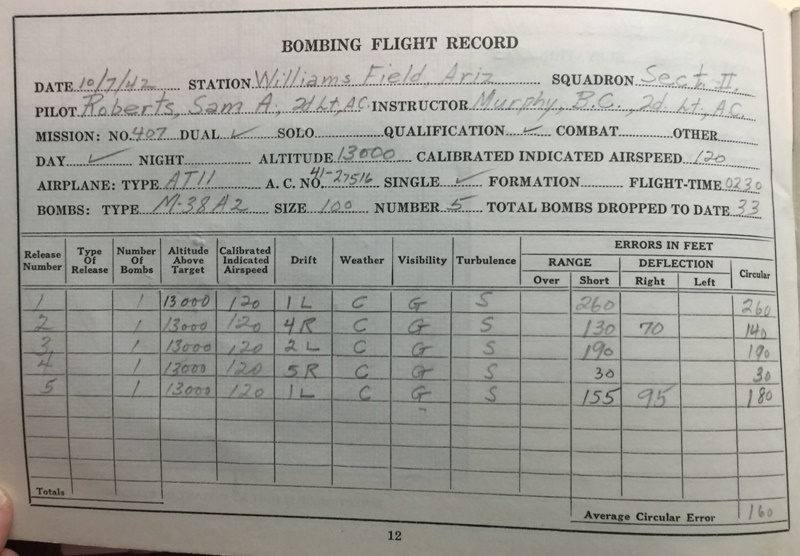 BOMBING FLIGHT RECORD
DATE 10/7/42 STATION Williams Field, Ariz SQUADRON Sect. II.
PILOT Roberts, Sam A, 2d Lt, AC. INSTRUCTOR Murphy, B.C., 2d Lt, AC.
MISSION: NO. 407 DUAL ✓ SOLO QUALIFICATION ✓ COMBAT OTHER
DAY ✓ NIGHT ALTITUDE 13000 CALIBRATED INDICATED AIRSPEED 120
AIRPLANE: TYPE AT11 A. C. NO. 41-27516 SINGLE ✓ FORMATION FLIGHT-TIME 0230
BOMBS: TYPE M-38A2 SIZE 100 NUMBER 5 TOTAL BOMBS DROPPED TO DATE 33
Release Number Type Of Release Number Of Bombs Altitude Above Target Calibrated Indicated Airspeed Drift Weather Visibility Turbulence ERRORS IN FEET
RANGE DEFLECTION Circular
Over Short Right Left
1 1 13000 120 1 L C G S 260 260
2 1 13000 120 4 R C G S 130 70 140
3 1 13000 120 2 L C G S 190 190
4 1 13000 120 5 R C G S 30 30
5 1 13000 120 1 L C G S 155 95 180
Totals
Average Circular Error 160
12